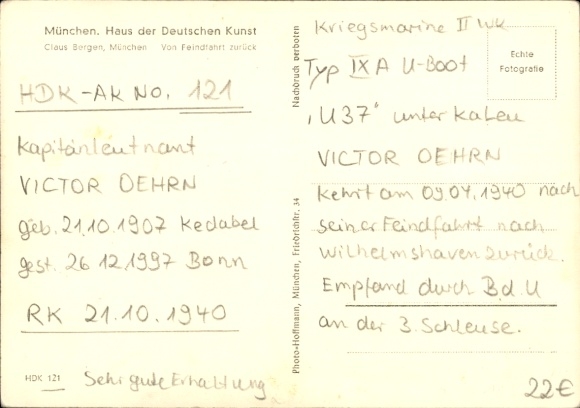 München. Haus der Deutschen Kunst
Claus Bergen, München Von Feindfahrt zurück
HDK-AK NO. 121
Kapitänleutnamt
VICTOR OEHRN
geb. 21.10.1907 Kedabel
gest. 26.12.1997 Bonn
RK 21.10.1940
HDK 121
Sehr gute Erhaltung
Nachdruck verboten
Photo-Hoffmann, München, Friedrichstr. 34
Kriegsmarine II WK
Echte
Fotografie
Typ IX A U-Boot
„U37" unter KaLeu
VICTOR OEHRN
Kehrt am 09.04.1940 nach
seiner Feindfahrt nach
Wilhelmshaven zurück.
Empfand durch B.d.U
an der 3. Schleuse.
22€